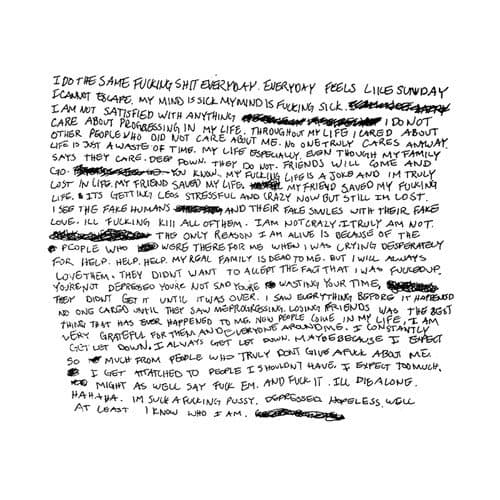 I DO THE SAME FUCKING SHIT EVERYDAY. EVERYDAY FEELS LIKE SUNDAY
I CANNOT ESCAPE. MY MIND IS SICK MY MIND IS FUCKING SICK.
I AM NOT SATISFIED WITH ANYTHING I DO NOT
CARE ABOUT PROGRESSING IN MY LIFE. THROUGHOUT MY LIFE I CARED ABOUT
OTHER PEOPLE WHO DID NOT CARE ABOUT ME. NO ONE TRULY CARES ANYWAY.
LIFE IS JUST A WASTE OF TIME. MY LIFE ESPECIALLY. EVEN THOUGH MY FAMILY
SAYS THEY CARE. DEEP DOWN. THEY DO NOT. FRIENDS WILL COME AND
GO. YOU KNOW. MY FUCKING LIFE IS A JOKE AND IM TRULY
LOST IN LIFE. MY FRIEND SAVED MY LIFE. MY FRIEND SAVED MY FUCKING
LIFE. & ITS GETTING LESS STRESSFUL AND CRAZY NOW BUT STILL IM LOST.
I SEE THE FAKE HUMANS AND THEIR FAKE SMILES WITH THEIR FAKE
LOVE. ILL FUCKING KILL ALL OF THEM. I AM NOT CRAZY. I TRULY AM NOT.
THE ONLY REASON I AM ALIVE IS BECAUSE OF THE
PEOPLE WHO WERE THERE FOR ME WHEN I WAS CRYING DESPERATELY
FOR HELP. HELP. HELP. MY REAL FAMILY IS DEAD TO ME. BUT I WILL ALWAYS
LOVE THEM. THEY DIDNT WANT TO ACCEPT THE FACT THAT I WAS FUCKEDUP.
YOURE NOT DEPRESSED YOURE NOT SAD YOURE WASTING YOUR TIME,
THEY DIDNT GET IT UNTIL IT WAS OVER. I SAW EVERYTHING BEFORE IT HAPPENED
NO ONE CARED UNTIL THEY SAW ME PROGRESSING. LOSING FRIENDS WAS THE BEST
THING THAT HAS EVER HAPPENED TO ME. NEW PEOPLE COME IN MY LIFE, I AM
VERY GRATEFUL FOR THEM AND EVERYONE AROUND ME. I CONSTANTLY
GET LET DOWN. I ALWAYS GOT LET DOWN. MAYBE BECAUSE I EXPECT
SO MUCH FROM PEOPLE WHO TRULY DONT GIVE A FUCK ABOUT ME.
I GET ATTATCHED TO PEOPLE I SHOULDN'T HAVE. I EXPECT TOO MUCH.
MIGHT AS WELL SAY FUCK EM. AND FUCK IT. ILL DIE ALONE.
HAHAHA. IM SUCH A FUCKING PUSSY. DEPRESSED HOPELESS. WELL
AT LEAST I KNOW WHO I AM.